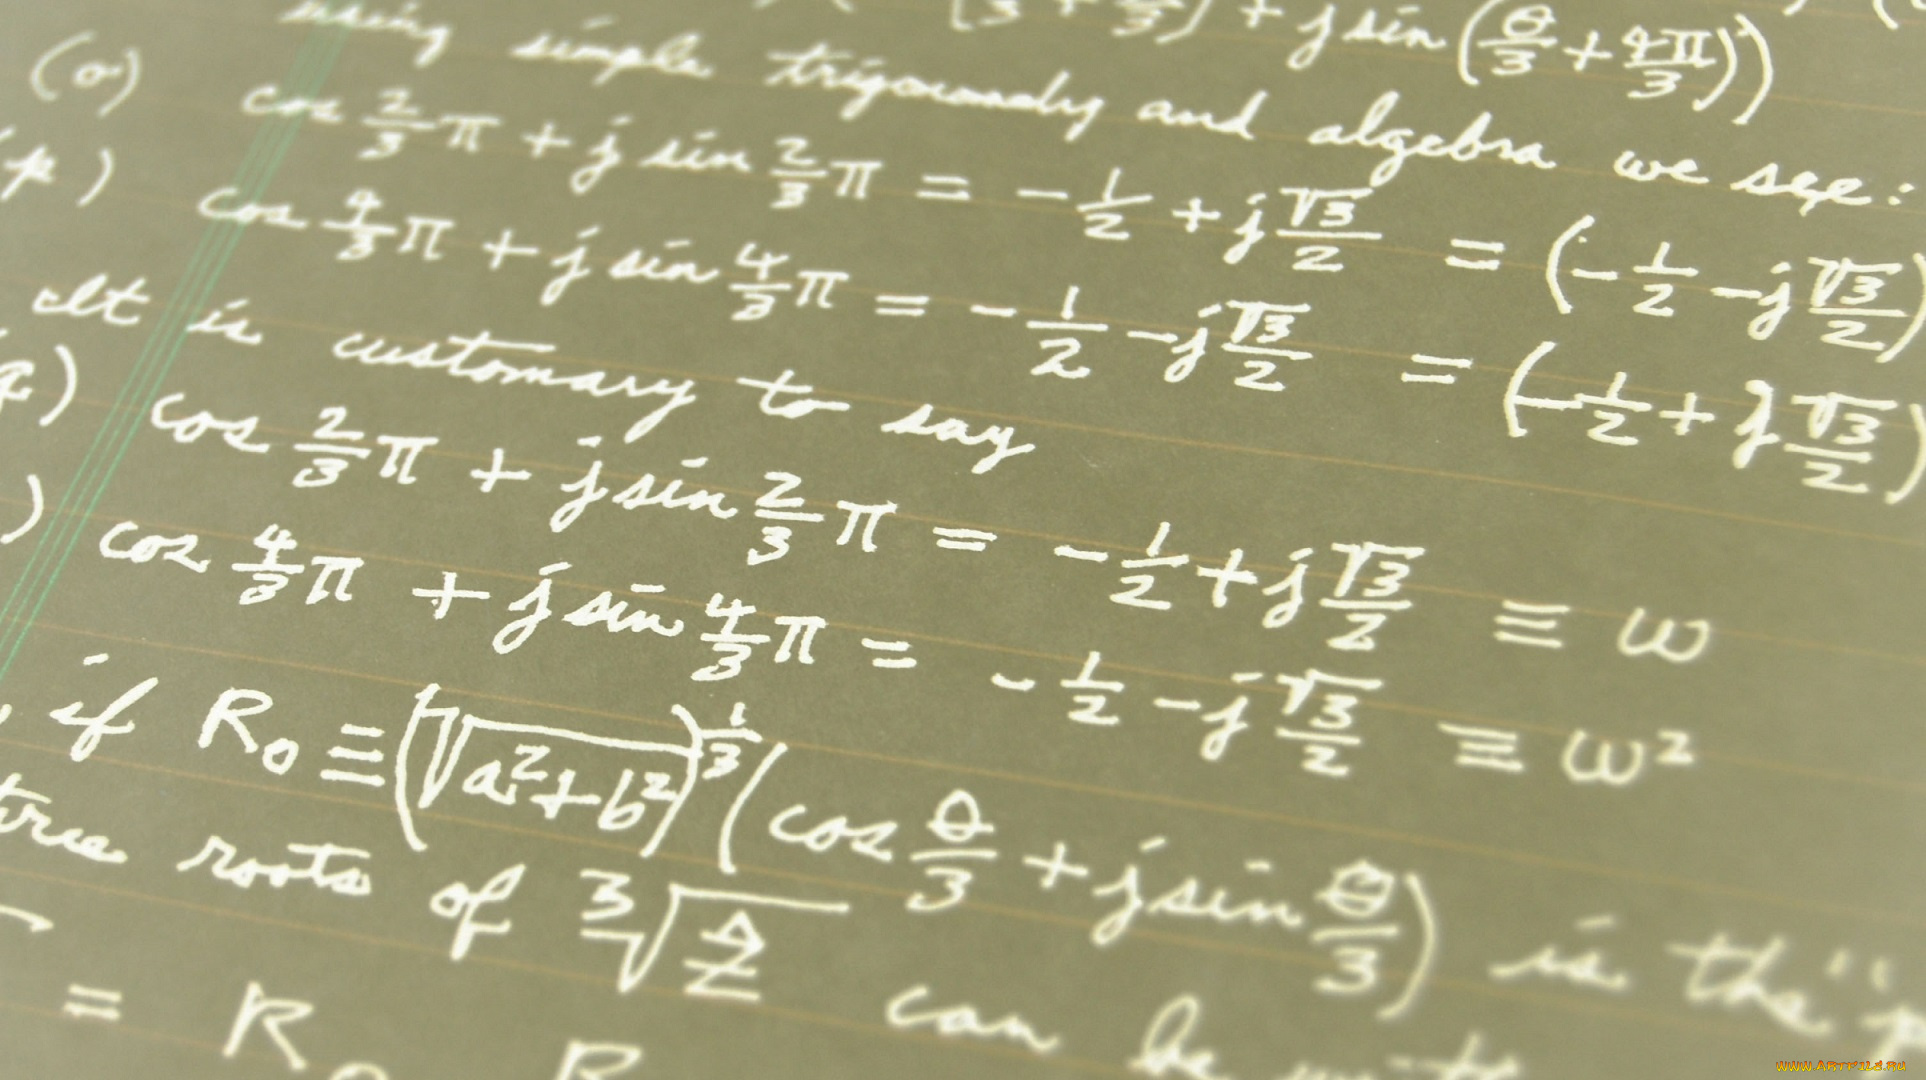 + j sin (θ/3 + 4π/3))
using simple and algebra we see:
(o) cos 2/3 π + j sin 2/3 π = - 1/2 + j √3/2 = (- 1/2 - j √3/2)
(p) cos 4/3 π + j sin 4/3 π = - 1/2 - j √3/2 = (- 1/2 + j √3/2)
It is customary to say
q) cos 2/3 π + j sin 2/3 π = - 1/2 + j √3/2 ≡ ω
) cos 4/3 π + j sin 4/3 π = - 1/2 - j √3/2 ≡ ω²
, if R₀ ≡ (√a²+b²)^1/3 (cos θ/3 + j sin θ/3) is the "
roots of ³√ẑ can be
= R₀ R
www.ARTFILE.RU